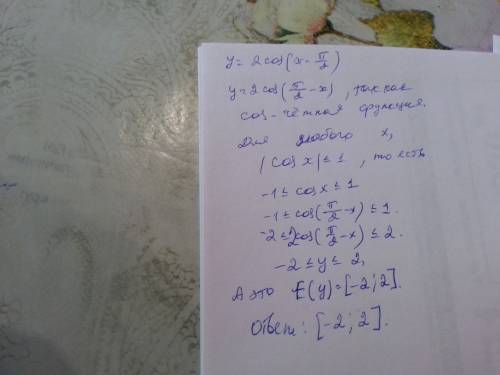 y = 2cos(x - π/2)
y = 2cos(π/2 - x), так как
cos - чётная функция.
Для любого x,
|cos x| ≤ 1, то есть
-1 ≤ cosx ≤ 1
-1 ≤ cos(π/2 - x) ≤ 1.
-2 ≤ 2cos(π/2 - x) ≤ 2.
-2 ≤ y ≤ 2,
А это E(y) = [-2; 2].
Ответ: [-2; 2].